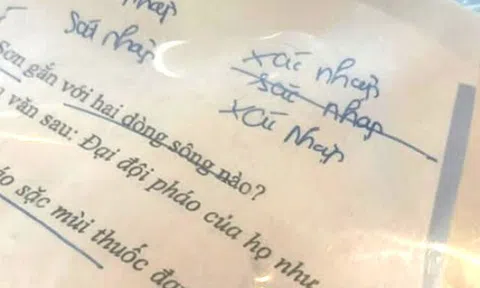 nhập
Sát nhập
xác nhập
sác nhập
xác nhập
Sơn gắn với hai dòng sông nào?
văn sau: Đại đội pháo của họ như
sặc mùi thuốc